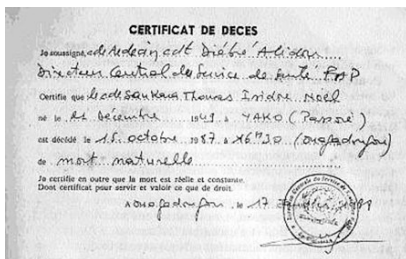 CERTIFICAT DE DECES
Je soussigné, le Médecin Cdt Diébré Alidou
Directeur Central du Service de Santé FAP
Certifie que le cde Sankara Thomas Isidore Noël
né le 21 Décembre 1949 à YAKO (Passoré)
est décédé le 15 octobre 1987 à 16H30 (Ouagadougou)
de mort naturelle
Je certifie en outre que la mort est réelle et constante.
Dont certificat pour servir et valoir ce que de droit.
A Ouagadougou, le 17